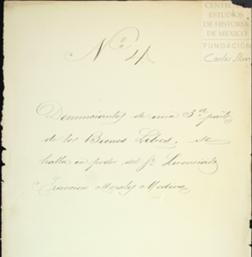 CENTRO DE
ESTUDIOS
DE HISTORIA
DE MEXICO
FUNDACIÓN
Carlos Slim
Nº 4
Denunciantes de una 3ª parte
de los Bienes Libres, se
halla en poder del Sr. Licenciado
Francisco Morales Medina